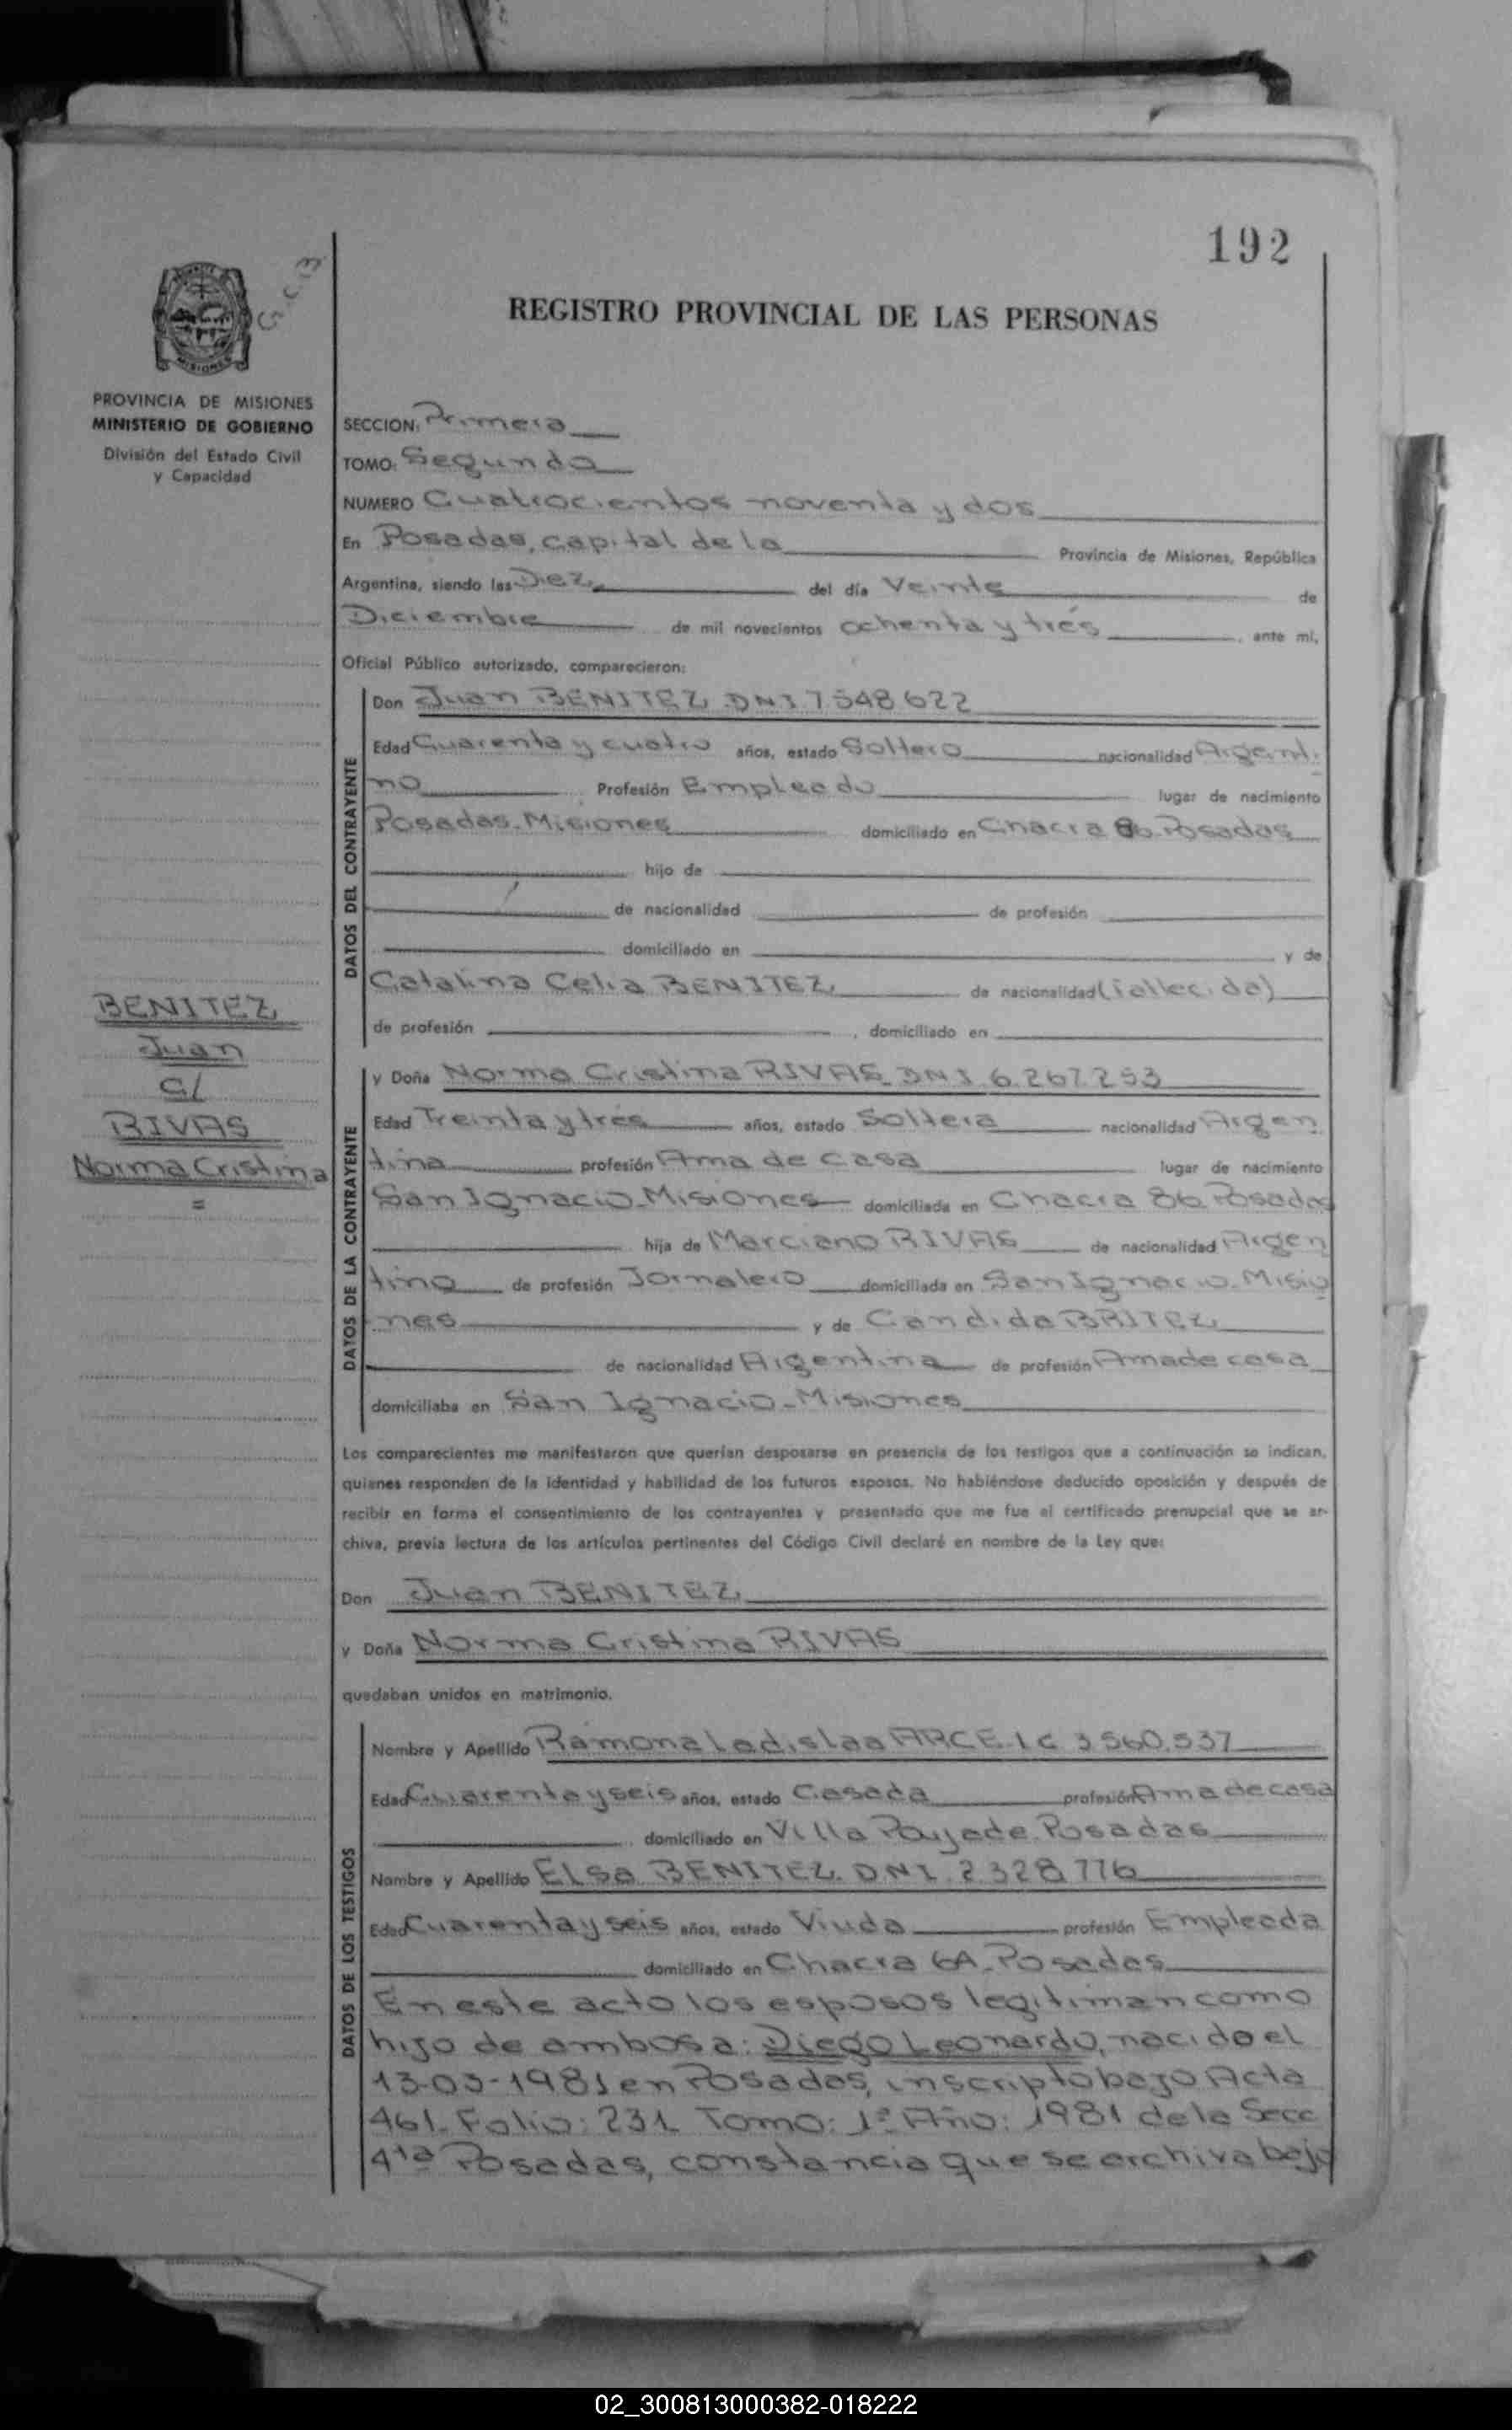 192
REGISTRO PROVINCIAL DE LAS PERSONAS
MISIONES
PROVINCIA DE MISIONES
MINISTERIO DE GOBIERNO
División del Estado Civil
y Capacidad
SECCION: Primera
TOMO: Segundo
NUMERO Cuatrocientos noventa y dos
En Posadas, capital de la Provincia de Misiones, República
Argentina, siendo las Diez, del día Veinte de
Diciembre de mil novecientos ochenta y tres, ante mí,
Oficial Público autorizado, comparecieron:
DATOS DEL CONTRAYENTE
Don Juan BENITEZ DNI 7548622
Edad Cuarenta y cuatro años, estado Soltero nacionalidad Argenti
no Profesión Empleado lugar de nacimiento
Posadas-Misiones domiciliado en Chacra 86-Posadas
hijo de
de nacionalidad de profesión
domiciliado en y de
Catalina Celia BENITEZ, de nacionalidad (fallecida)
de profesión , domiciliado en
BENITEZ
Juan
C/
RIVAS
Norma Cristina
=
DATOS DE LA CONTRAYENTE
y Doña Norma Cristina RIVAS DNI 6.267.253
Edad Treinta y tres años, estado Soltera nacionalidad Argen
tina profesión Ama de casa lugar de nacimiento
San Ignacio-Misiones domiciliada en Chacra 86 Posadas
hija de Marciano RIVAS de nacionalidad Argen
tino de profesión Jornalero domiciliada en San Ignacio-Misio
nes y de Candida BRITEZ,
de nacionalidad Argentina de profesión Ama de casa
domiciliaba en San Ignacio-Misiones
Los comparecientes me manifestaron que querían desposarse en presencia de los testigos que a continuación se indican,
quienes responden de la identidad y habilidad de los futuros esposos. No habiéndose deducido oposición y después de
recibir en forma el consentimiento de los contrayentes y presentado que me fue el certificado prenupcial que se ar-
chiva, previa lectura de los artículos pertinentes del Código Civil declaré en nombre de la Ley que:
Don Juan BENITEZ
y Doña Norma Cristina RIVAS
quedaban unidos en matrimonio.
DATOS DE LOS TESTIGOS
Nombre y Apellido Ramona Ladislaa ARCE. LC 3.560.537
Edad Cuarenta y seis años, estado Casada profesión Ama de casa
domiciliado en Villa Poujade-Posadas
Nombre y Apellido Elsa BENITEZ. DNI. 2.328.776
Edad Cuarenta y seis años, estado Viuda profesión Empleada
domiciliado en Chacra 6A-Posadas
En este acto los esposos legitiman como
hijo de ambos a: Diego Leonardo, nacido el
13-03-1981 en Posadas, inscripto bajo Acta
461- Folio: 231 Tomo: 1º Año: 1981 de la Secc
4ta Posadas, constancia que se archiva bajo
02_300813000382-018222